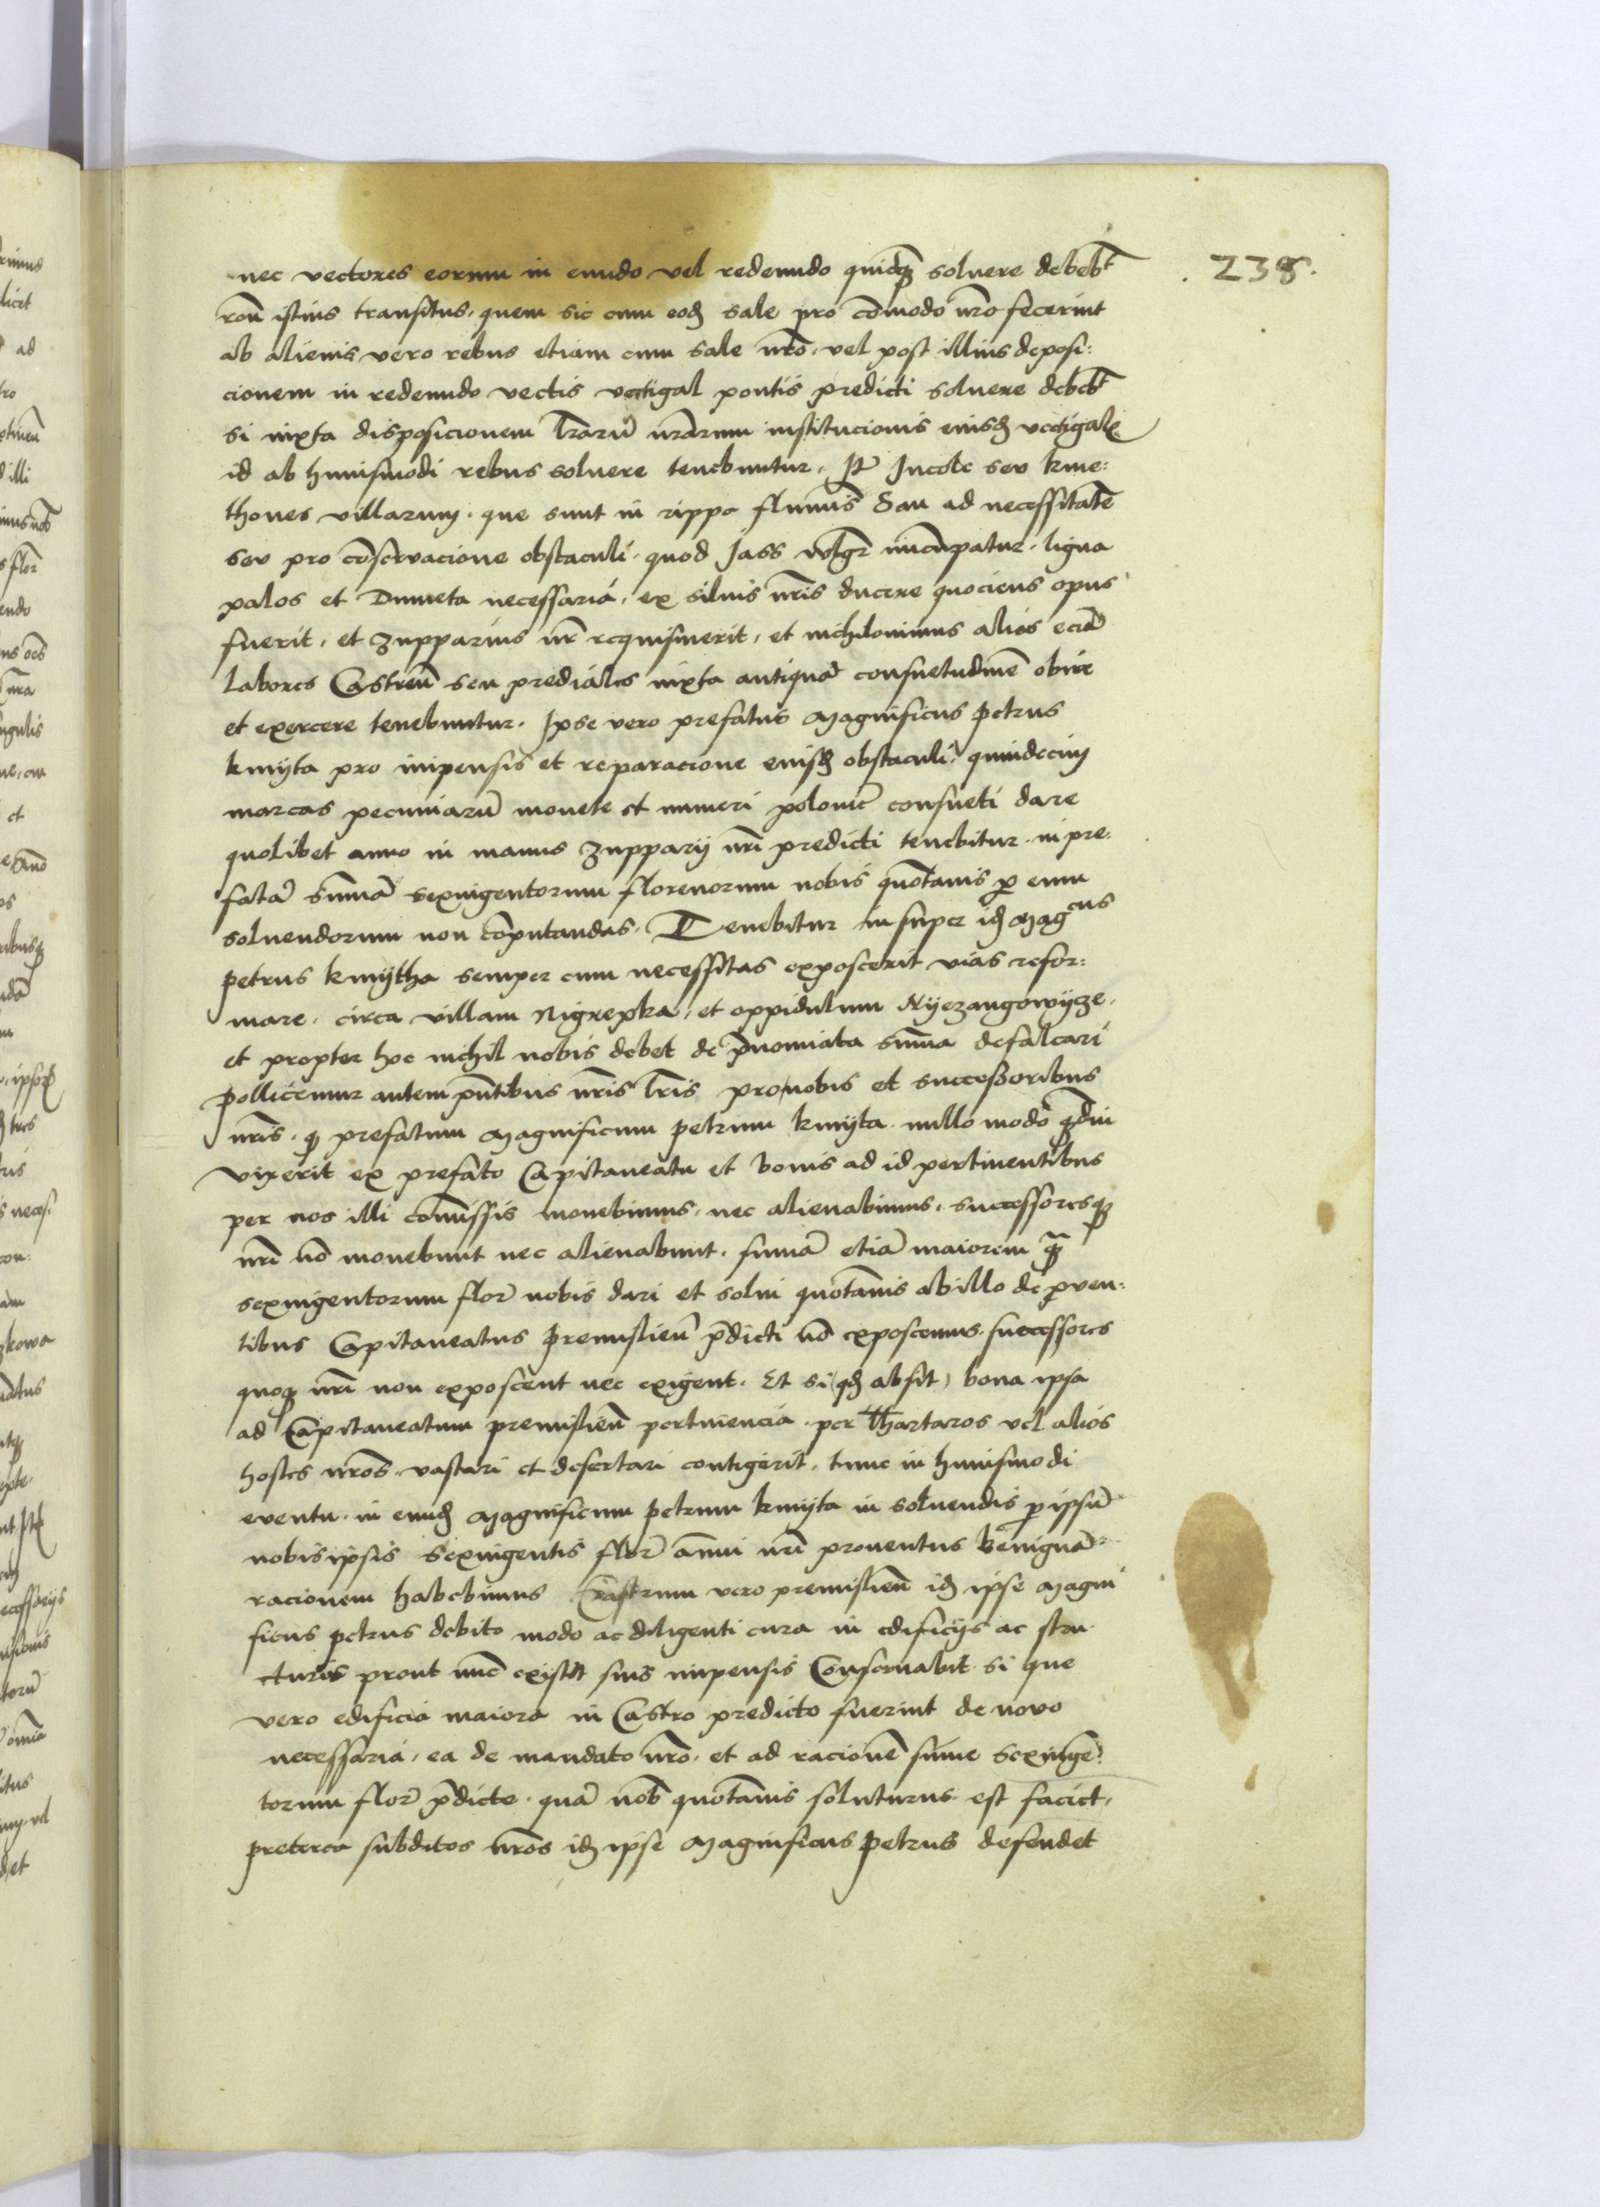 238.
nec vectores eorum in eundo vel redeundo quicq̃ soluere debebt̃
ron̄ istius transitus, quem sic cum eod̃ sale pro cōmodo nr̃o fecerint
ab alienis vero rebus etiam cum sale nr̃o, vel post illius deposi:
cionem in redeundo vectis vectigal pontis predicti soluere debebt̃
si iuxta disposicionem lr̃arū nr̃arum institucionis eiusd̃ vectigalis
id ab huiusmodi rebus soluere tenebuntur. It̃ Incole seu kme:
thones villarum. que sunt in rippa fluminis San ad necessitatē
seu pro cōseruacione obstaculi. quod Jass vulgr̃ nūcupatur. ligna
palos et Dumeta necessaria, ex siluis nr̃is ducere quociens opus
fuerit, et zupparius nr̃ requisiuerit, et nichilominus alios eciā
labores Castreñ seu prediales iuxta antiquā consuetudinē obire
et exercere tenebuntur. Ipse vero prefatus Magnificus petrus
kmyta pro impensis et reparacione eiusd̃ obstaculi, quindecim
marcas pecuniarū monete et numeri polonic̃ consueti dare
quolibet anno in manus zupparij nr̃i predicti tenebitur. in pre:
fatā sūmā sexingentorum florenorum nobis quotānis p eum
soluendorum non cōputandas. Tenebitur insuper id̃ Magcus
petrus kmytha semper cum necessitas exposcerit vias refor:
mare. circa villam Nigrepka, et oppidulum Nyezangowycze,
et propter hoc nichil nobis debet de p̃nomiata sūma defalcari
pollicemur autem p̃ntibus nr̃is lr̃is pro nobis et successoribus
nr̃is. q̃ prefatum Magnificum petrum kmyta. nullo modo q̃diu
vixerit ex prefato Capitaneatu et bonis ad id pertinentibus
per nos illi cōmissis mouebimus, nec alienabimus, successoresq̃
nr̃i nō mouebunt nec alienabunt. sumā etiā maiorem q̃
sexingentorum flor̃ nobis dari et solui quotānis ab illo de prouen:
tibus Capitaneatus premislieñ p̃dicti nō exposcemus. successores
quoq̃ nr̃i non exposcent nec exigent. Et si (qd̃ absit) bona ipsa
ad Capitaneatum premislieñ pertinencia. per Thartaros vel alios
hostes nr̃os. vastari et desertari contigerit. tunc in huiusmodi
euentu. in eund̃ Magnificum petrum kmyta in soluendis p ipsū
nobis ipsis sexingentis flor̃ annui nr̃i prouentus benignā
racionem habebimus Castrum vero premislieñ id̃ ipse Magni
ficus petrus debito modo ac diligenti cura in edificijs ac stru
cturis prout nūc existit suis impensis Conseruabit. si que
vero edificia maiora in Castro predicto fuerint de nouo
necessaria, ea de mandato nr̃o. et ad racionē sūme sexingē:
torum flor̃ p̃dicte. quā nob̃ quotānis soluturus est faciet,
preterea subditos nr̃os id̃ ipse Magnificus petrus defendet